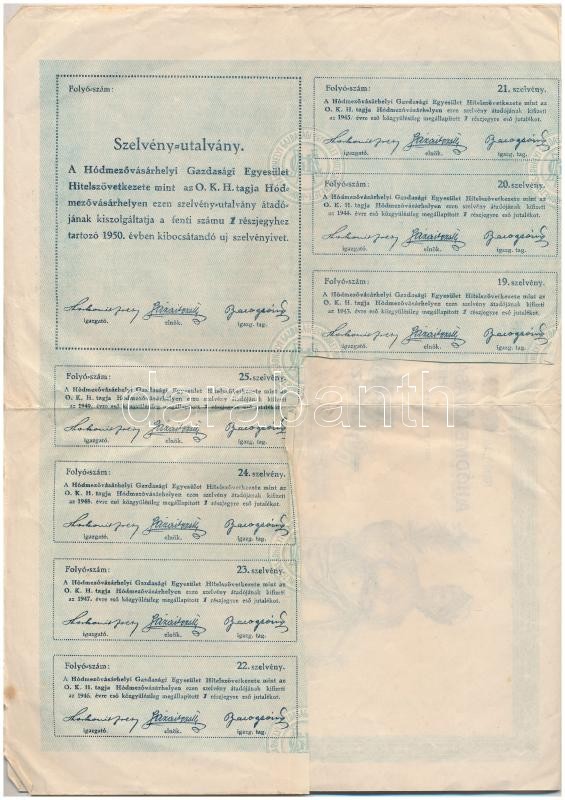 Folyó-szám:
Szelvény-utalvány.
A Hódmezővásárhelyi Gazdasági Egyesület
Hitelszövetkezete mint az O. K. H. tagja Hód-
mezővásárhelyen ezen szelvény-utalvány átadó-
jának kiszolgáltatja a fenti számu 1 részjegyhez
tartozó 1950. évben kibocsátandó uj szelvényivet.
igazgató. elnök. igazg. tag.
Folyó-szám: 21. szelvény.
A Hódmezővásárhelyi Gazdasági Egyesület Hitelszövetkezete mint az
O. K. H. tagja Hódmezővásárhelyen ezen szelvény átadójának kifizeti
az 1945. évre eső közgyülésileg megállapitott 1 részjegyre eső jutalékot.
igazgató. elnök. igazg. tag.
Folyó-szám: 20. szelvény.
A Hódmezővásárhelyi Gazdasági Egyesület Hitelszövetkezete mint az
O. K. H. tagja Hódmezővásárhelyen ezen szelvény átadójának kifizeti
az 1944. évre eső közgyülésileg megállapitott 1 részjegyre eső jutalékot.
igazgató. elnök. igazg. tag.
Folyó-szám: 19. szelvény.
A Hódmezővásárhelyi Gazdasági Egyesület Hitelszövetkezete mint az
O. K. H. tagja Hódmezővásárhelyen ezen szelvény átadójának kifizeti
az 1943. évre eső közgyülésileg megállapitott 1 részjegyre eső jutalékot.
igazgató. elnök. igazg. tag.
Folyó-szám: 25. szelvény.
A Hódmezővásárhelyi Gazdasági Egyesület Hitelszövetkezete mint az
O. K. H. tagja Hódmezővásárhelyen ezen szelvény átadójának kifizeti
az 1949. évre eső közgyülésileg megállapitott 1 részjegyre eső jutalékot.
igazgató. elnök. igazg. tag.
Folyó-szám: 24. szelvény.
A Hódmezővásárhelyi Gazdasági Egyesület Hitelszövetkezete mint az
O. K. H. tagja Hódmezővásárhelyen ezen szelvény átadójának kifizeti
az 1948. évre eső közgyülésileg megállapitott 1 részjegyre eső jutalékot.
igazgató. elnök. igazg. tag.
Folyó-szám: 23. szelvény.
A Hódmezővásárhelyi Gazdasági Egyesület Hitelszövetkezete mint az
O. K. H. tagja Hódmezővásárhelyen ezen szelvény átadójának kifizeti
az 1947. évre eső közgyülésileg megállapitott 1 részjegyre eső jutalékot.
igazgató. elnök. igazg. tag.
Folyó-szám: 22. szelvény.
A Hódmezővásárhelyi Gazdasági Egyesület Hitelszövetkezete mint az
O. K. H. tagja Hódmezővásárhelyen ezen szelvény átadójának kifizeti
az 1946. évre eső közgyülésileg megállapitott 1 részjegyre eső jutalékot.
igazgató. elnök. igazg. tag.
darabanth